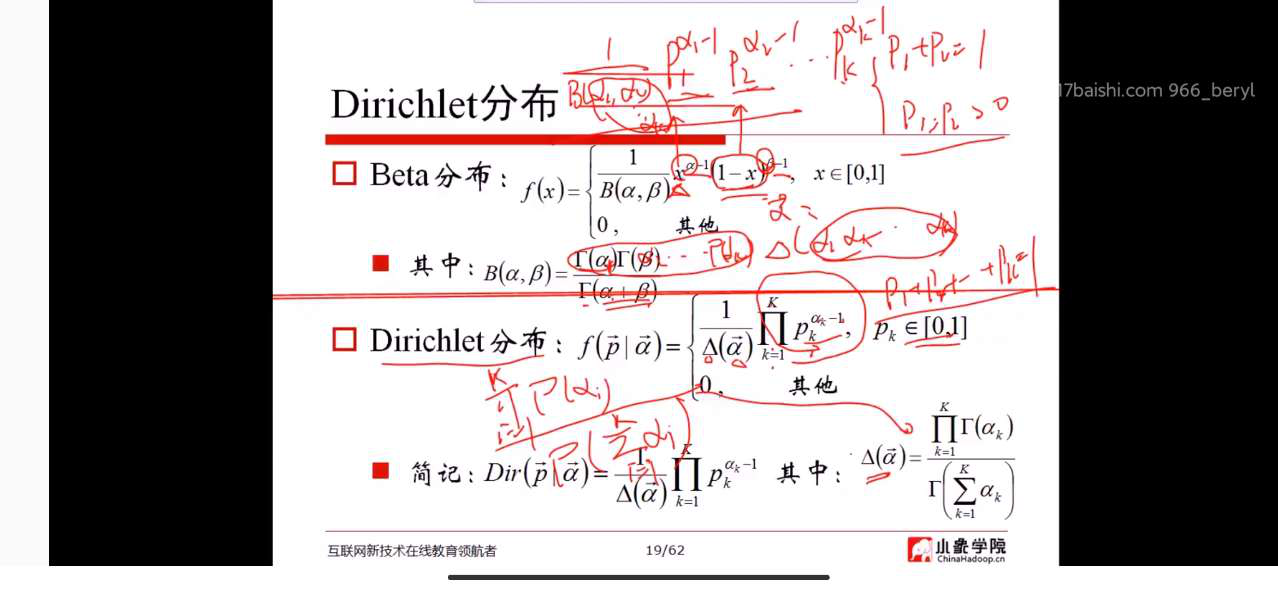 1 / B(α₁, α₂) p₁^{α₁-1} p₂^{α₂-1} ⋯ p_k^{α_k-1}
p₁+p₂=1
p₁,p₂>0
17baishi.com 966_beryl
Dirichlet分布
□ Beta分布: f(x)={ 1/B(α,β) x^{α-1}(1-x)^{β-1}, x∈[0,1]
0, 其他
■ 其中: B(α,β)=Γ(α)Γ(β)/Γ(α+β)
p₁+p₂+⋯+p_k=1
□ Dirichlet分布: f(p⃗|α⃗)={ 1/Δ(α⃗) ∏_{k=1}^{K} p_k^{α_k-1}, p_k∈[0,1]
0, 其他
∏_{i=1}^{K} Γ(αᵢ)
Γ(∑_{i=1}^{K} αᵢ)
■ 简记: Dir(p⃗|α⃗)=1/Δ(α⃗) ∏_{k=1}^{K} p_k^{α_k-1} 其中: Δ(α⃗)=∏_{k=1}^{K} Γ(α_k)/Γ(∑_{k=1}^{K} α_k)
互联网新技术在线教育领航者
19/62
小象学院
ChinaHadoop.cn